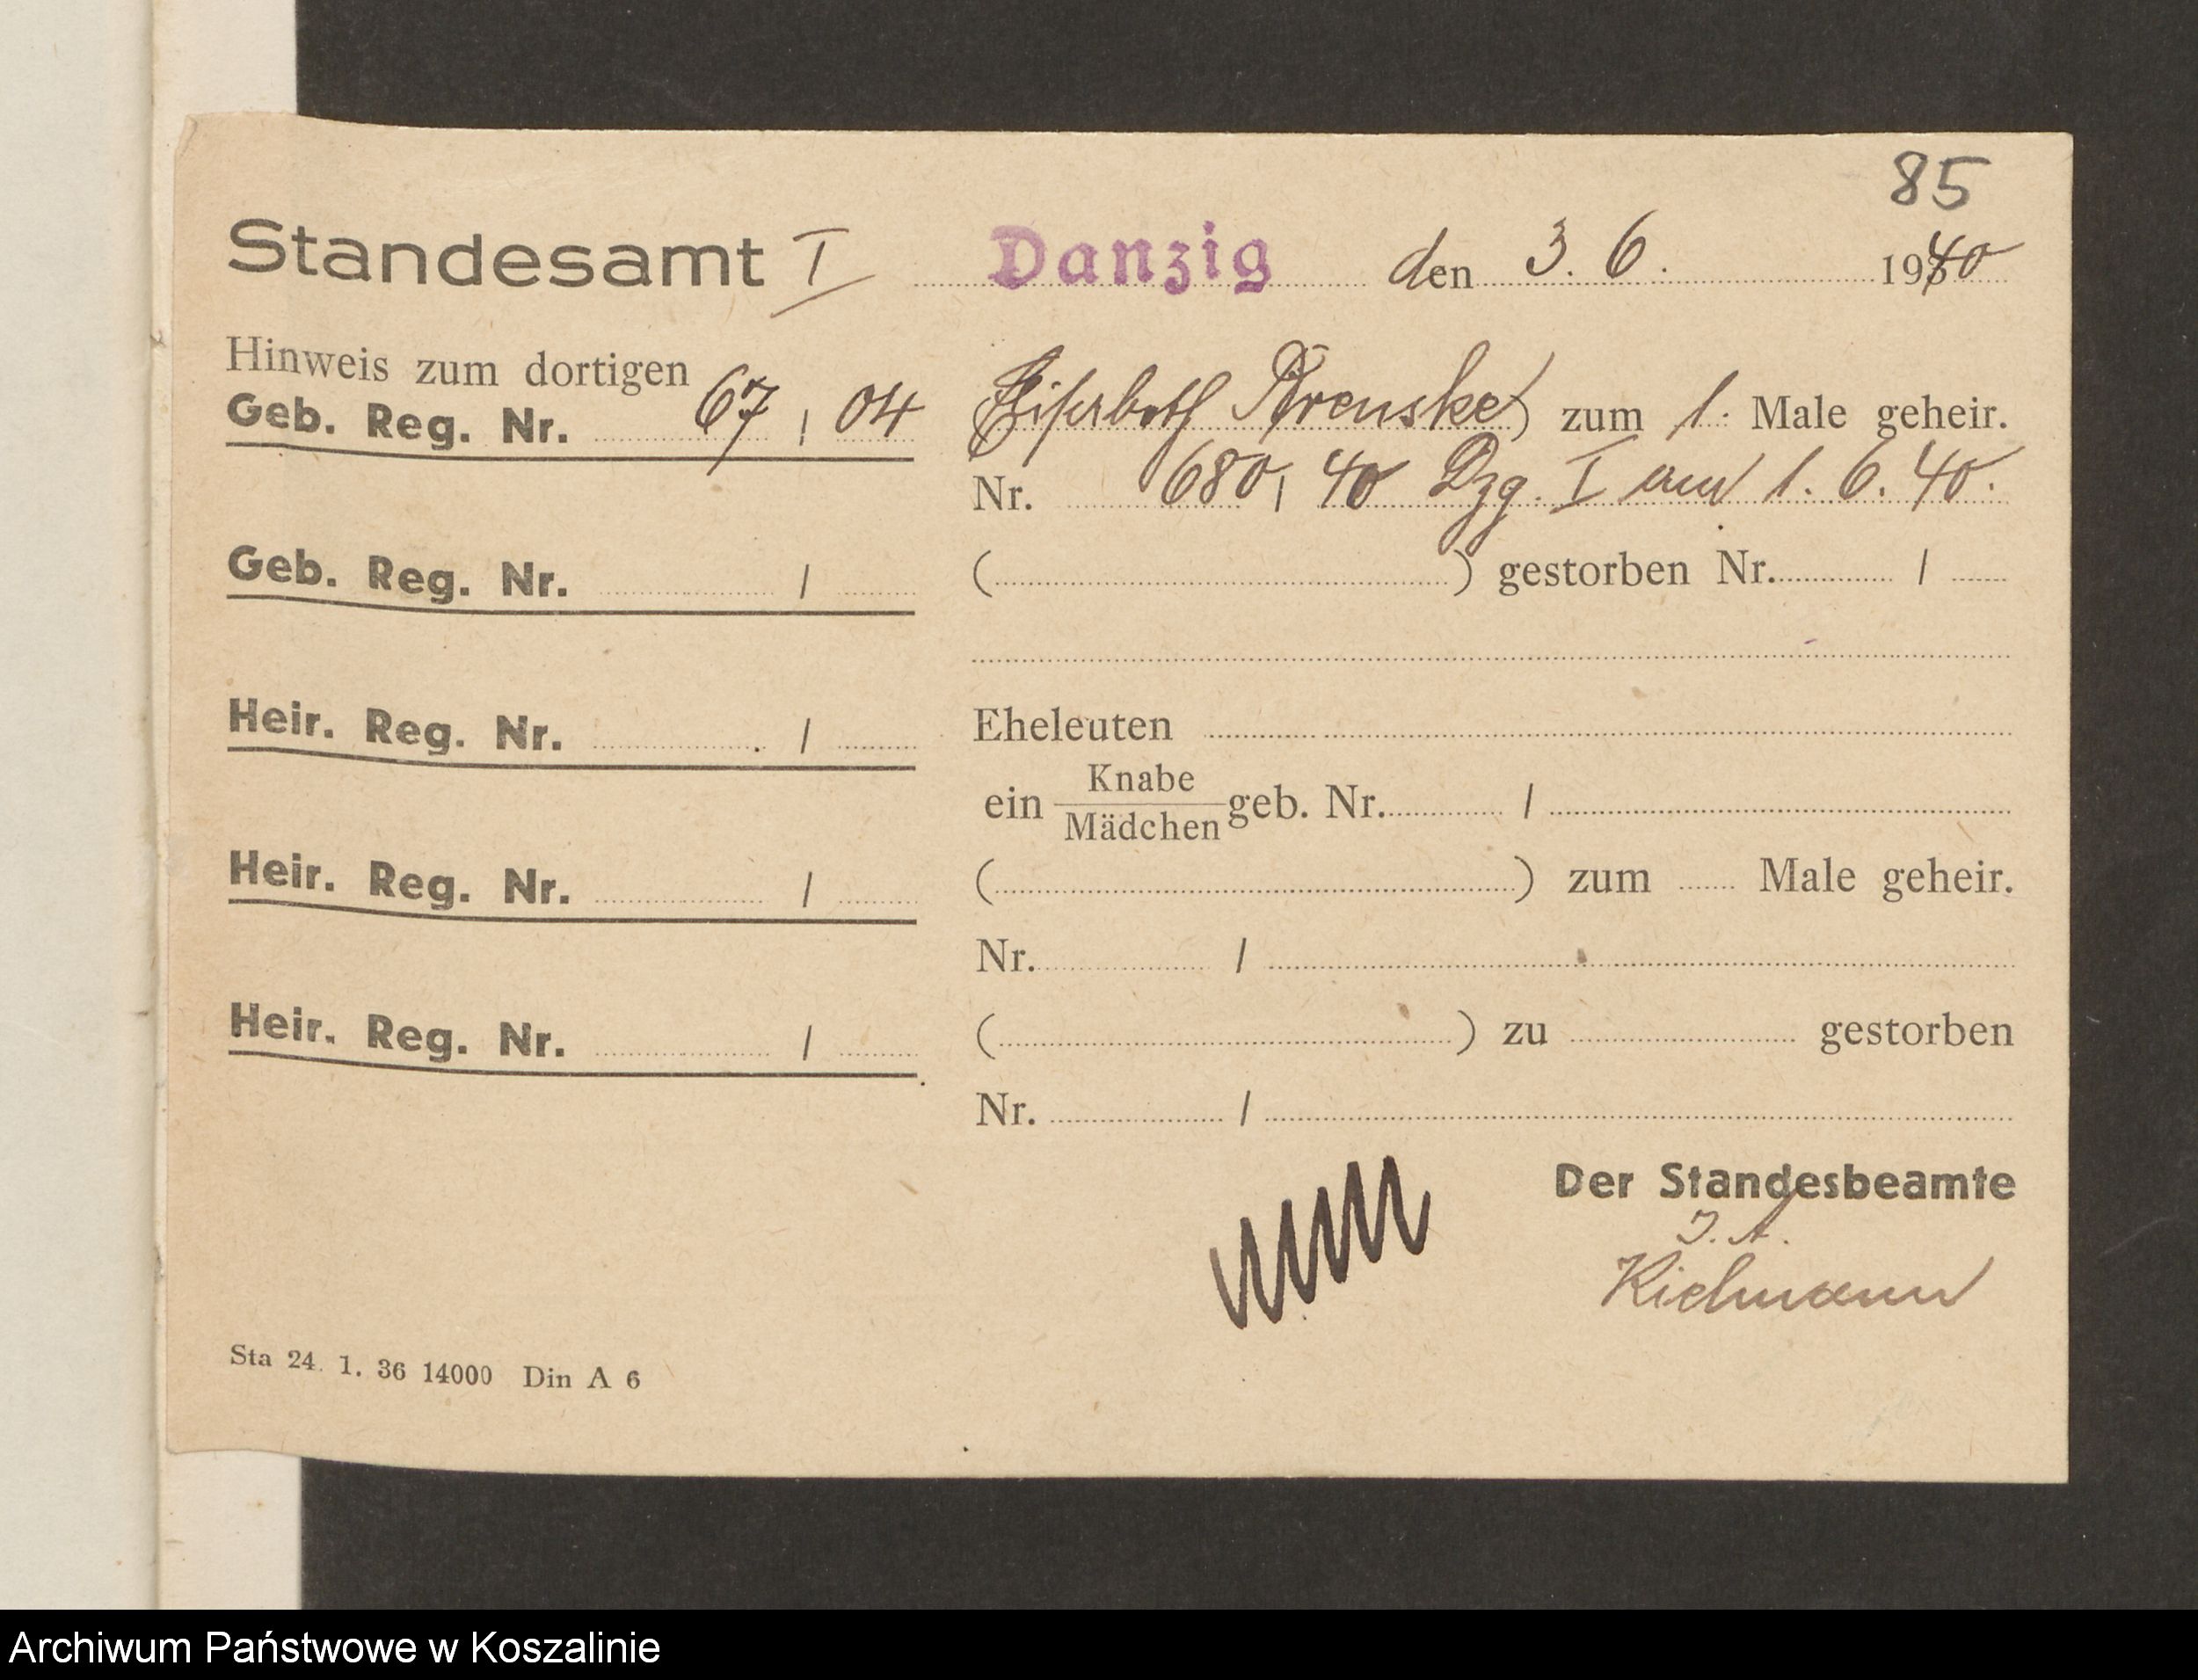 85
Standesamt I Danzig den 3. 6. 1940
Hinweis zum dortigen
Geb. Reg. Nr. 67 / 04 Prenske) zum 1. Male geheir.
Nr. 680 / 40 Dzg. I am 1. 6. 40.
Geb. Reg. Nr. / ( ) gestorben Nr. /
Heir. Reg. Nr. / Eheleuten
ein Knabe
Mädchen geb. Nr. /
Heir. Reg. Nr. / ( ) zum Male geheir.
Nr. /
Heir. Reg. Nr. / ( ) zu gestorben
Nr. /
Der Standesbeamte
J. A.
Kielmann
Sta 24. 1. 36 14000 Din A 6
Archiwum Państwowe w Koszalinie